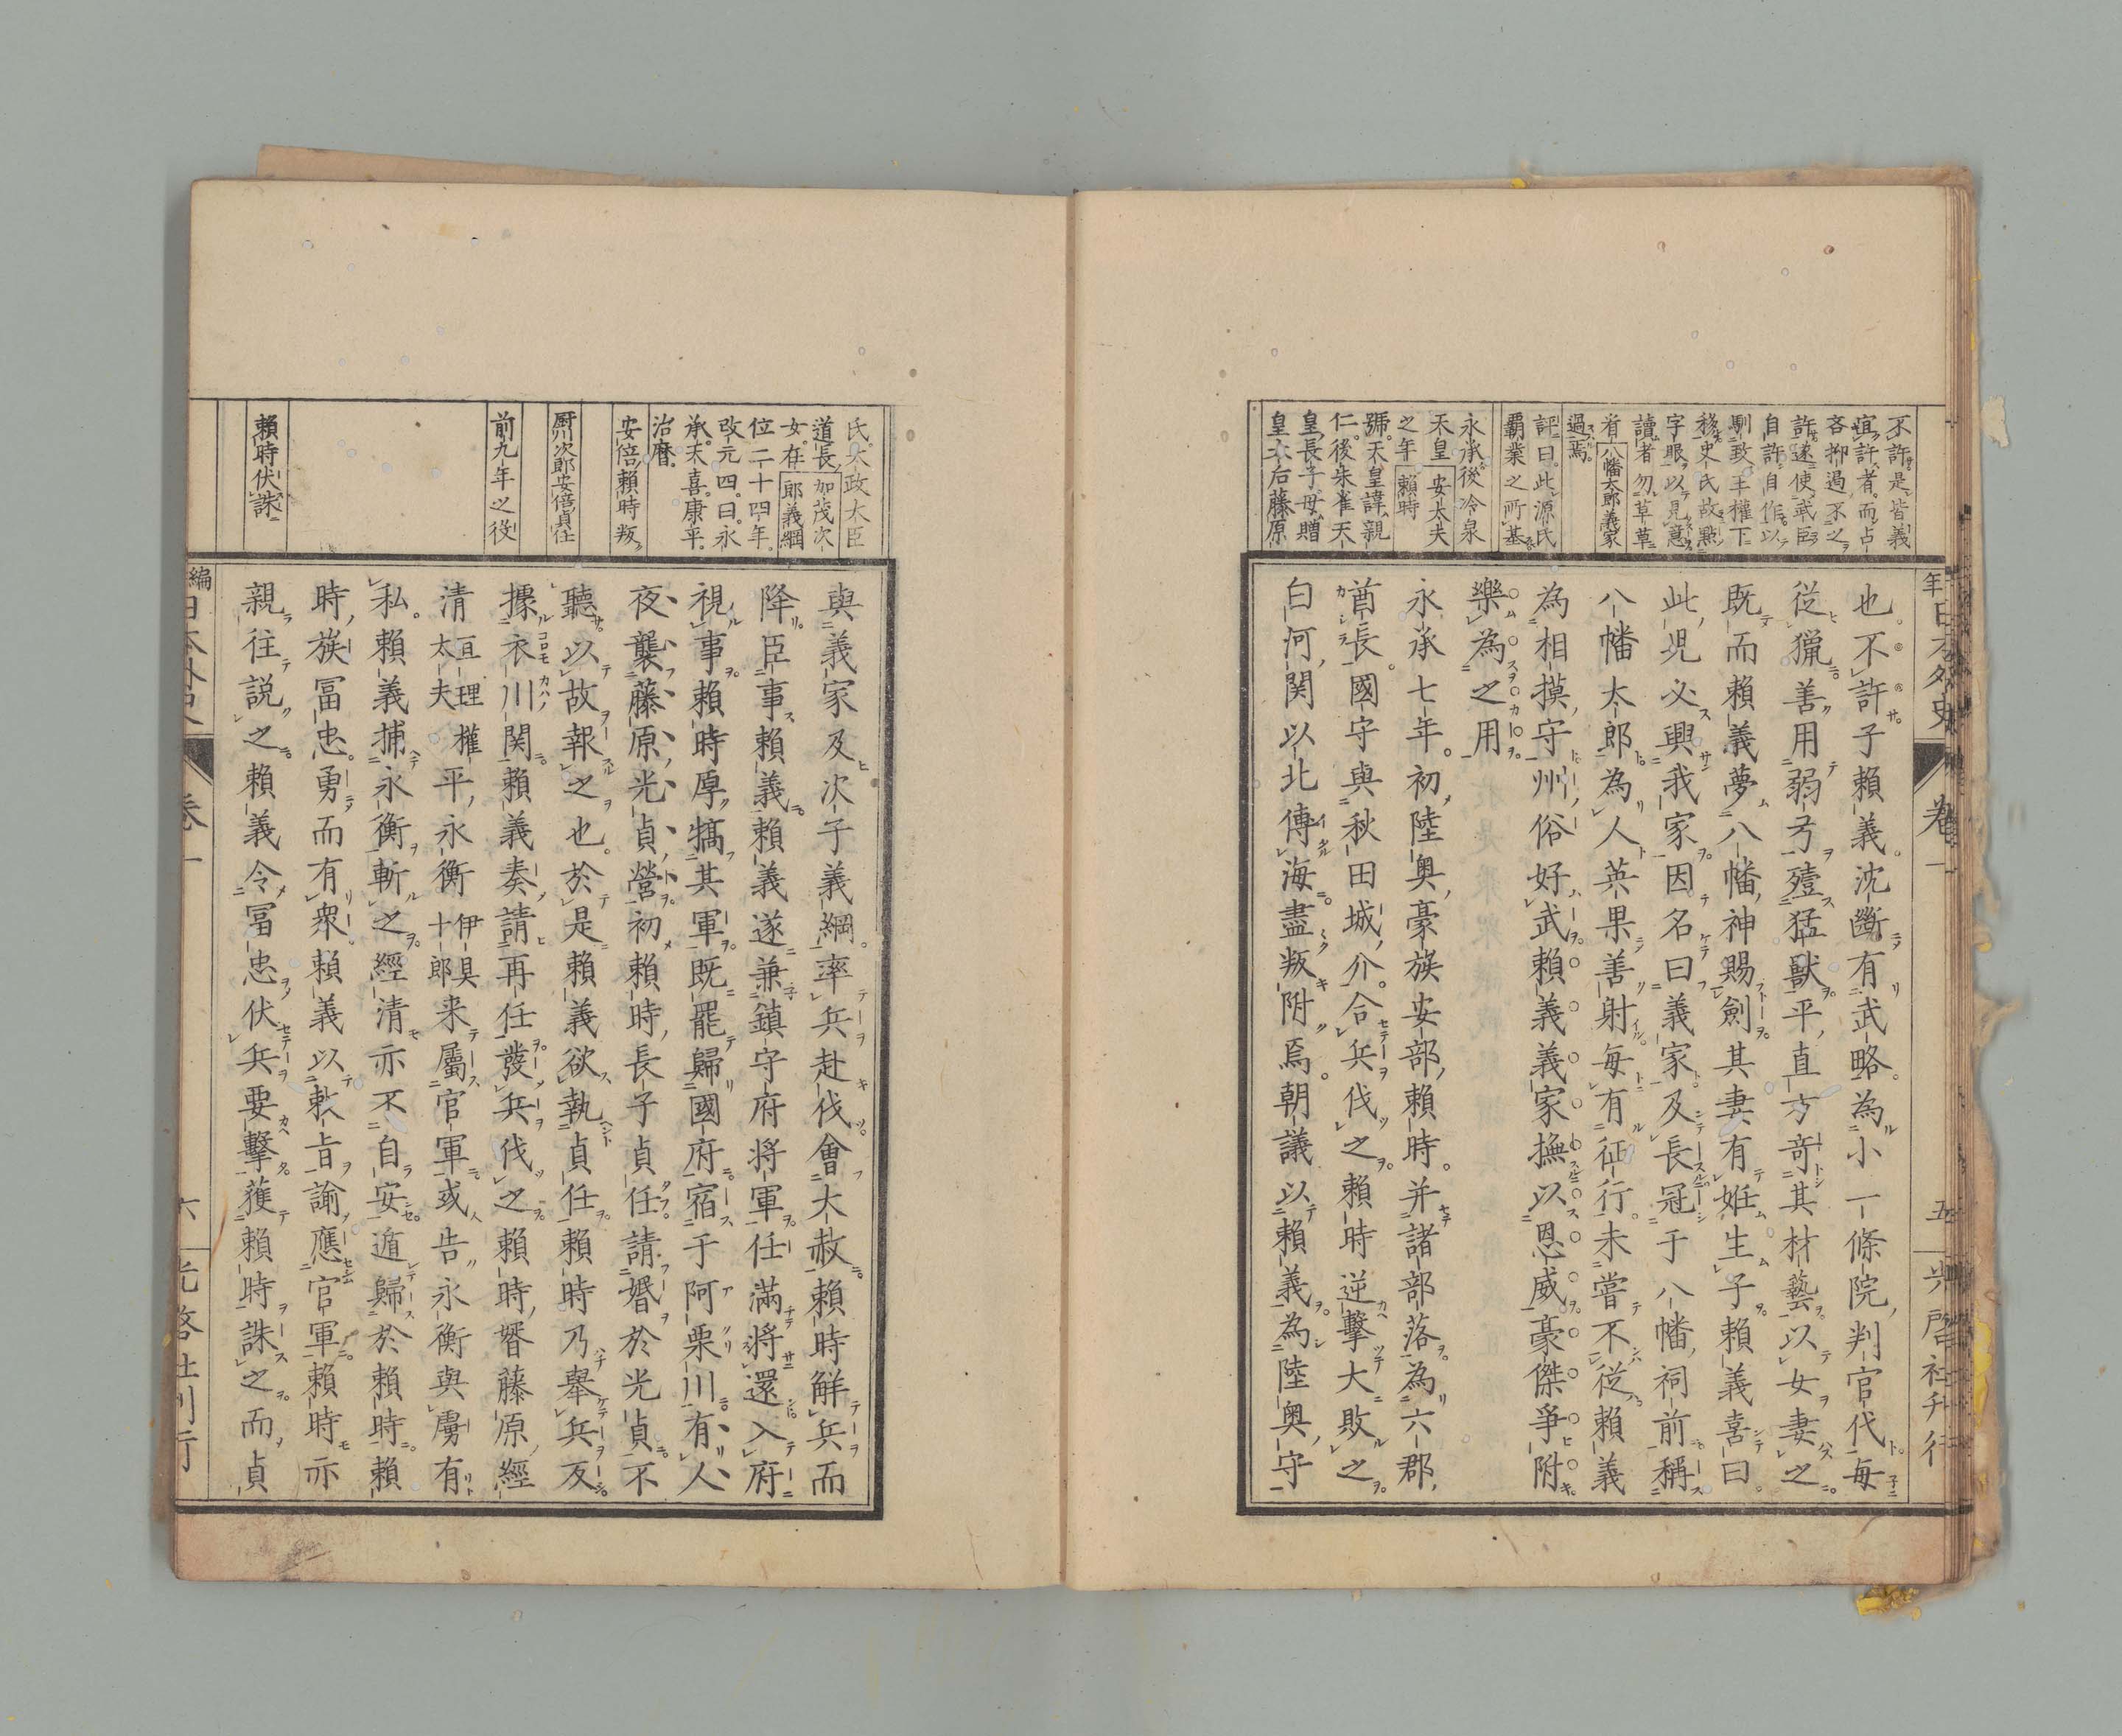 不許是皆義
宜許者而占
吝抑過不之
許遂使武臣
自許自作以
馴致王權下
移史氏故點
字眼以見意
讀者勿草草
看過焉
八幡太郎義家
評曰此源氏
覇業之所基
永承後冷泉
天皇之年
安大夫賴時
號天皇諱親
仁後朱雀天
皇長子母贈
皇太后藤原
年日本外史
卷一
五
光啓社刊行
也。不許子賴義。沈斷有武略。為小一條院判官代每
從獵。善用弱弓殪猛獸。平直方奇其材藝。以女妻之
既而賴義夢八幡神賜劍其妻有姙生子賴義喜曰
此兒必興我家因名曰義家及長冠于八幡祠前稱
八幡太郎為人英果善射每有征行未嘗不從賴義
為相摸守州俗好武賴義義家撫以恩威豪傑爭附
樂為之用
永承七年。初陸奥豪族安部賴時。并諸部落為六郡
酋長。國守與秋田城介。合兵伐之。賴時逆擊大敗之
白河関以北傳海。盡叛附焉。朝議以賴義為陸奥守
氏太政大臣
道長
加茂次郎義綱
女在
位二十四年
改元四曰永
承天喜康平
治暦
安倍賴時叛
厨川次郎安倍貞任
前九年之役
賴時伏誅
與義家及次子義綱。率兵赴伐。會大赦。賴時解兵而
降。臣事賴義。賴義遂兼鎮守府将軍任滿将還入府
視事賴時厚犒其軍既罷歸國府宿于阿栗川有人
夜襲藤原光貞營初賴時長子貞任請婚於光貞不
聽以故報之也。於是賴義欲執貞任賴時乃舉兵反
據衣川関。賴義奏請再任發兵伐之賴時婿藤原經
清亘理權太夫平永衡伊具十郎来屬官軍或告永衡與虜有
私。賴義捕永衡斬之經清亦不自安遁歸於賴時賴
時族冨忠。勇而有衆。賴義以敕旨諭應官軍賴時亦
親往説之。賴義令冨忠伏兵要擊獲賴時誅之而貞
編日本外史
卷一
六
光啓社刊行